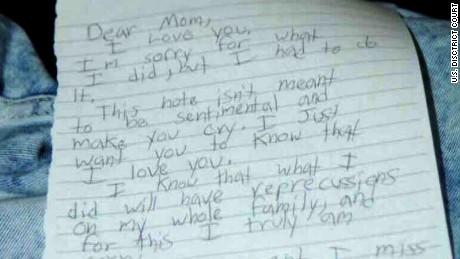 Dear Mom,
I Love you.
I'm sorry for what
I did, but I had to do
It.
This note isn't meant
to be sentimental and
make you cry. I Just
want you to know that
I love you.
I know that what I
did will have reprecussions
on my whole family, and
for this I truly am
I miss
US DISCTRICT COURT